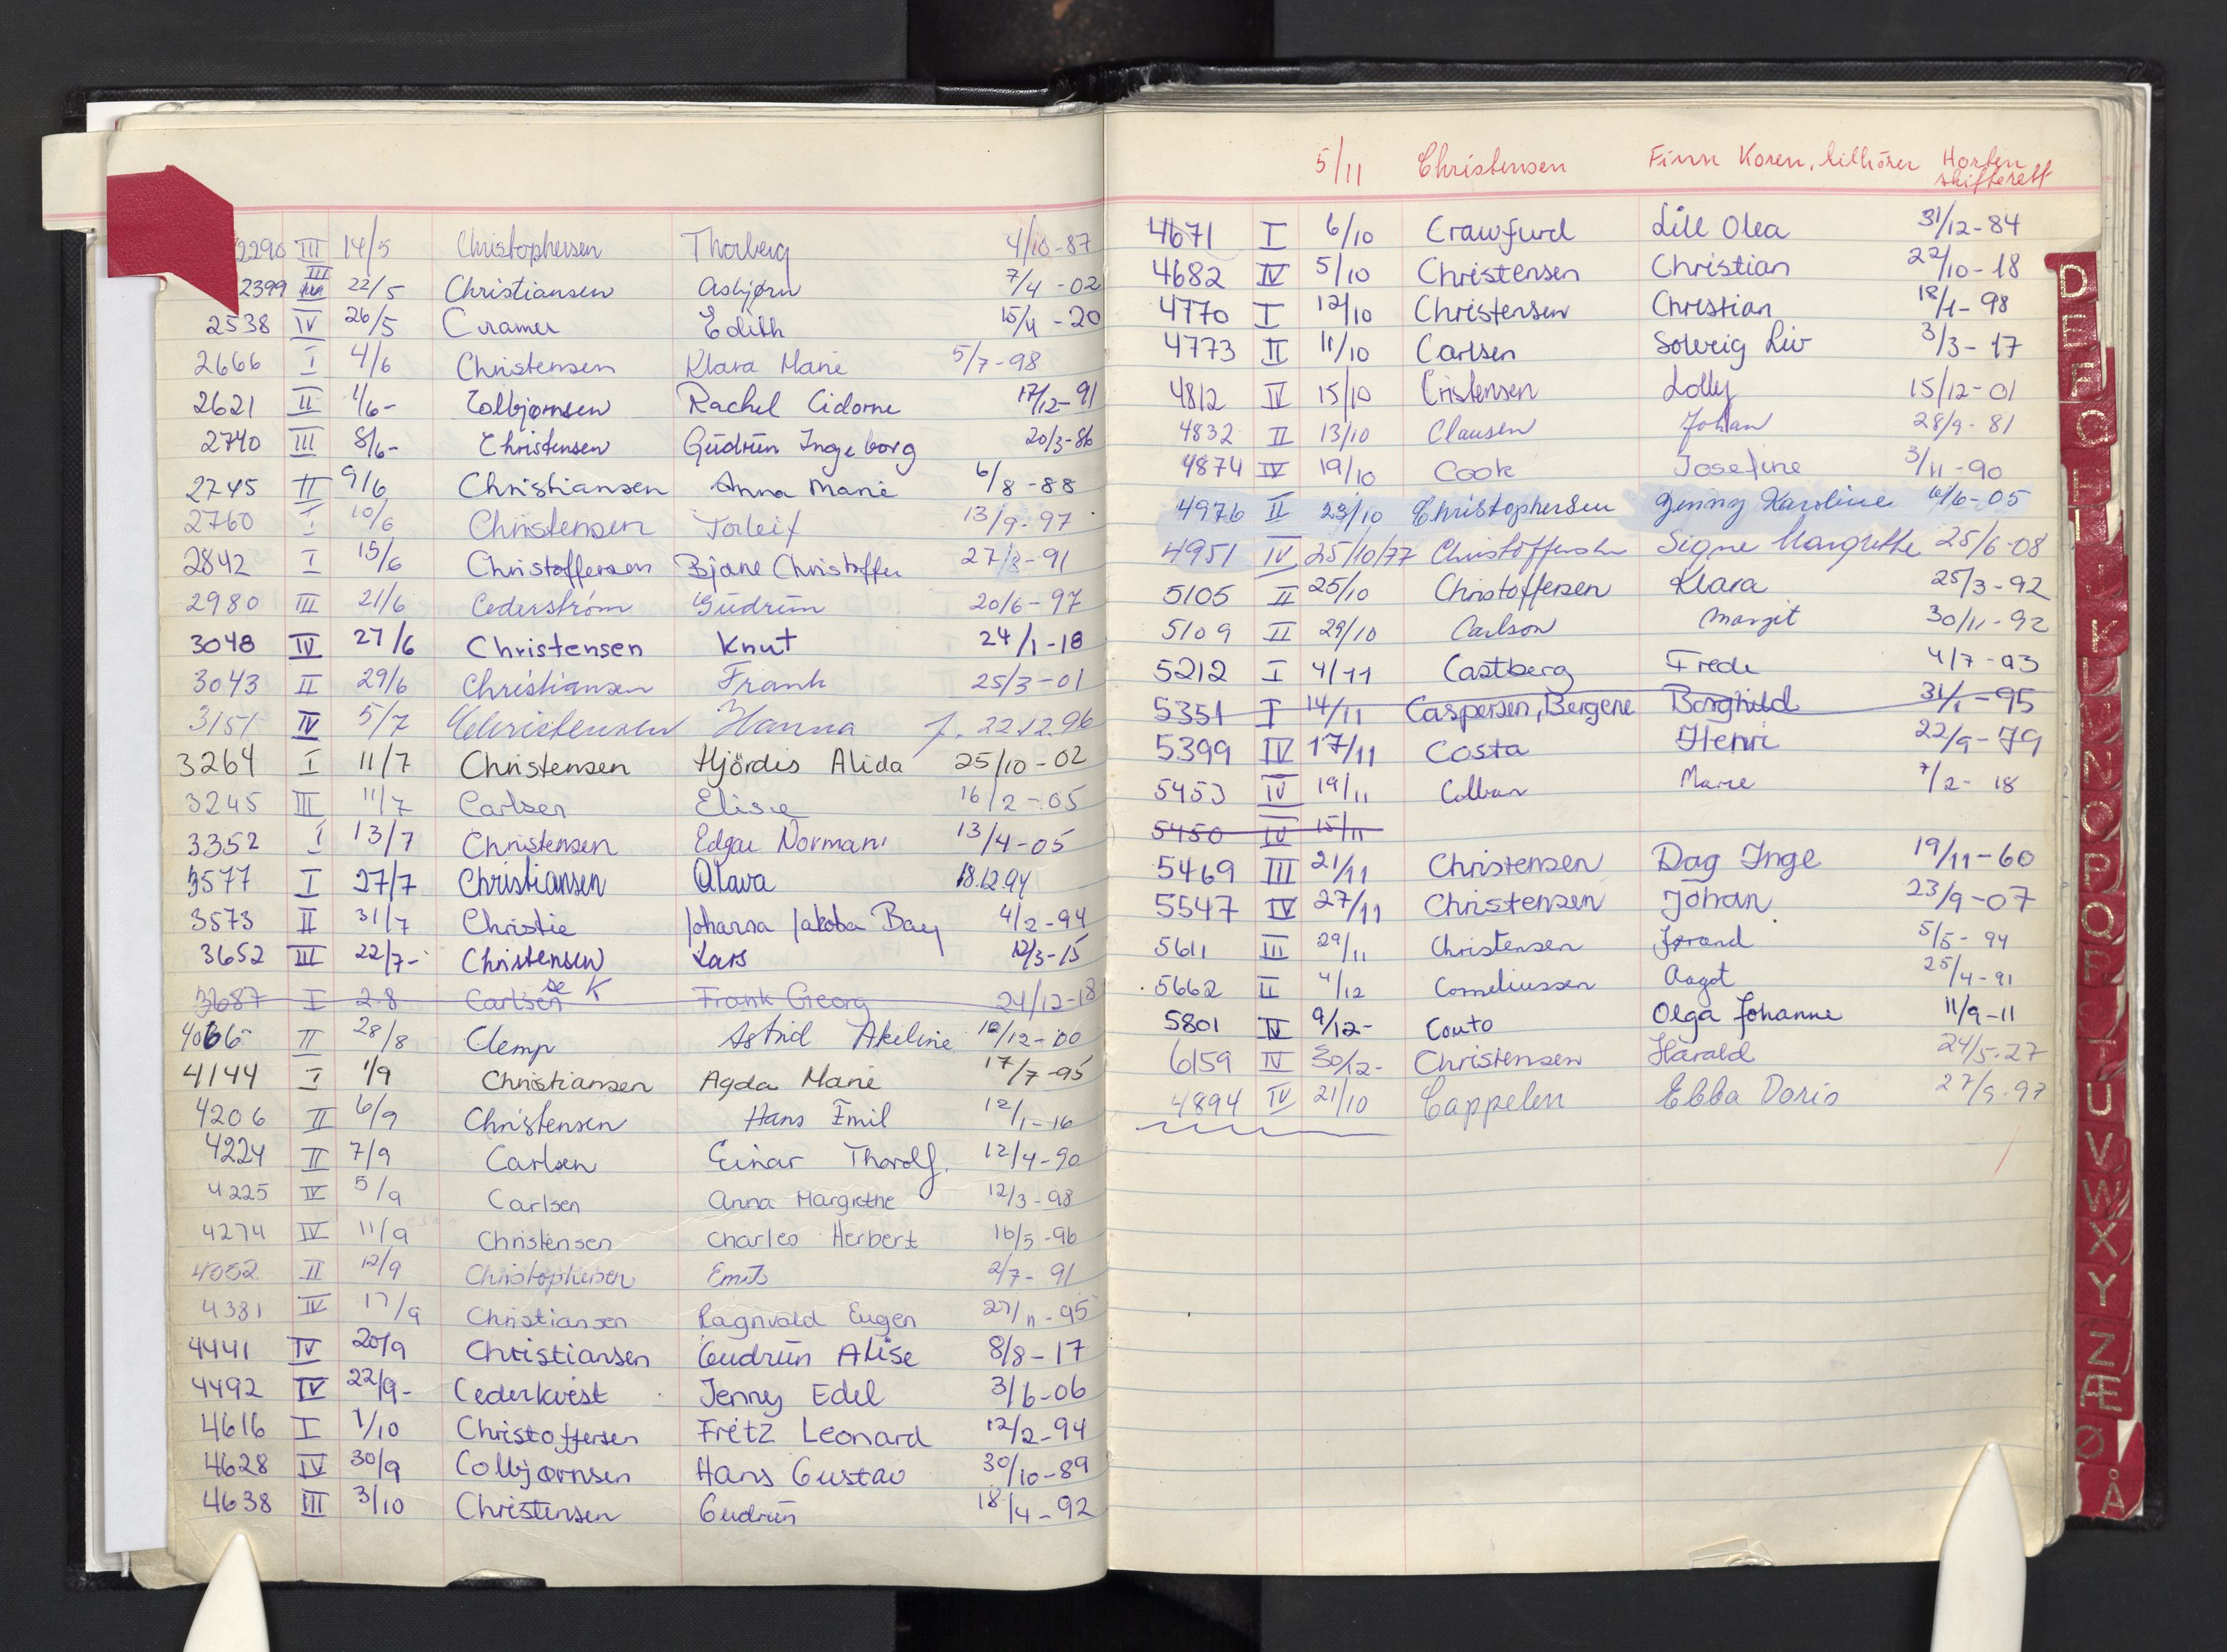 2290 III 14/5 Christophersen Thorberg 4/10-87
2399 III 22/5 Christiansen Asbjørn 7/4-02
2538 IV 26/5 Cramer Edith 15/4-20
2666 I 4/6 Christensen Klara Marie 5/7-98
2621 II 1/6- Colbjørnsen Rachel Cidorne 17/12-91
2740 III 8/6- Christensen Gudrun Ingeborg 20/3-86
2745 II 9/6 Christiansen Anna Marie 6/8-88
2760 I 10/6 Christensen Torleif 13/9-97
2842 I 15/6 Christoffersen Bjane Christoffer 27/8-91
2980 III 21/6 Cederstrøm Gudrun 20/6-97
3048 IV 27/6 Christensen Knut 24/1-18
3043 II 29/6 Christiansen Frank 25/3-01
3151 IV 5/7 Christensen Hanna f. 22.12.96
3264 I 11/7 Christensen Hjördis Alida 25/10-02
3245 III 11/7 Carlsen Elise 16/2-05
3352 I 13/7 Christensen Edgar Norman 13/4-05
3577 I 27/7 Christiansen Olava 18.12.94
3573 II 31/7 Christie Johanna Jakoba Bay 4/2-94
3652 III 22/7- Christensen Lars 12/3-15
3687 I 2.8 Carlsen se K Frank Georg 24/12-18
4066 II 28/8 Clemp Astrid Akeline 10/12-00
4144 I 1/9 Christiansen Agda Marie 17/7-95
4206 II 6/9 Christensen Hans Emil 12/1-16
4224 II 7/9 Carlsen Einar Thorolf. 12/4-90
4225 IV 5/9 Carlsen Anna Margrethe 12/3-98
4274 IV 11/9 Christensen Charles Herbert 16/5-96
II 12/9 Christophersen Emil 2/7-91
4381 IV 17/9 Christiansen Ragnvald Eugen 27/11-95
4441 IV 20/9 Christiansen Gudrun Alise 8/8-17
4492 IV 22/9- Cederkvist Jenny Edel 3/6-06
4616 I 1/10 Christoffersen Fritz Leonard 12/2-94
4628 IV 30/9 Colbjørnsen Hans Gustav 30/10-89
4638 III 3/10 Christensen Gudrun 18/4-92
5/11 Christensen Finn Koren, tilhører Horten skifterett
4671 I 6/10 Crawfurd Lill Olea 31/12-84
4682 IV 5/10 Christensen Christian 22/10-18
4770 I 12/10 Christensen Christian 18/1-98
4773 II 11/10 Carlsen Solveig Liv 3/3-17
4812 IV 15/10 Cristensen Lolly 15/12-01
4832 II 13/10 Clausen Johan 28/9-81
4874 IV 19/10 Cook Josefine 3/11-90
4976 II 23/10 Christophersen Jenny Karoline 6/6-05
4951 IV 25/10/77 Christoffersen Signe Margrethe 25/6-08
5105 II 25/10 Christoffersen Klara 25/3-92
5109 II 29/10 Carlson Margit 30/11-92
5212 I 4/11 Castberg Frede 4/7-93
5351 I 14/11 Caspersen, Bergene Borghild 31/1-95
5399 IV 17/11 Costa Henri 22/9-79
5453 IV 19/11 Colban Marie 7/2-18
5450 IV 15/11
5469 III 21/11 Christensen Dag Inge 19/11-60
5547 IV 27/11 Christensen Johan 23/9-07
5611 III 29/11 Christensen Jørand 5/5-94
5662 II 4/12 Corneliussen Aagot 25/4-91
5801 IV 9/12- Couto Olga Johanne 11/9-11
6159 IV 30/12- Christensen Harald 24/5-27
4894 IV 21/10 Cappelen Ebba Doris 27/9-97
D
E
F
G
H
I
J
K
L
M
N
O
P
Q
R
S
T
U
V
W
X
Y
Z
Æ
Ø
Å